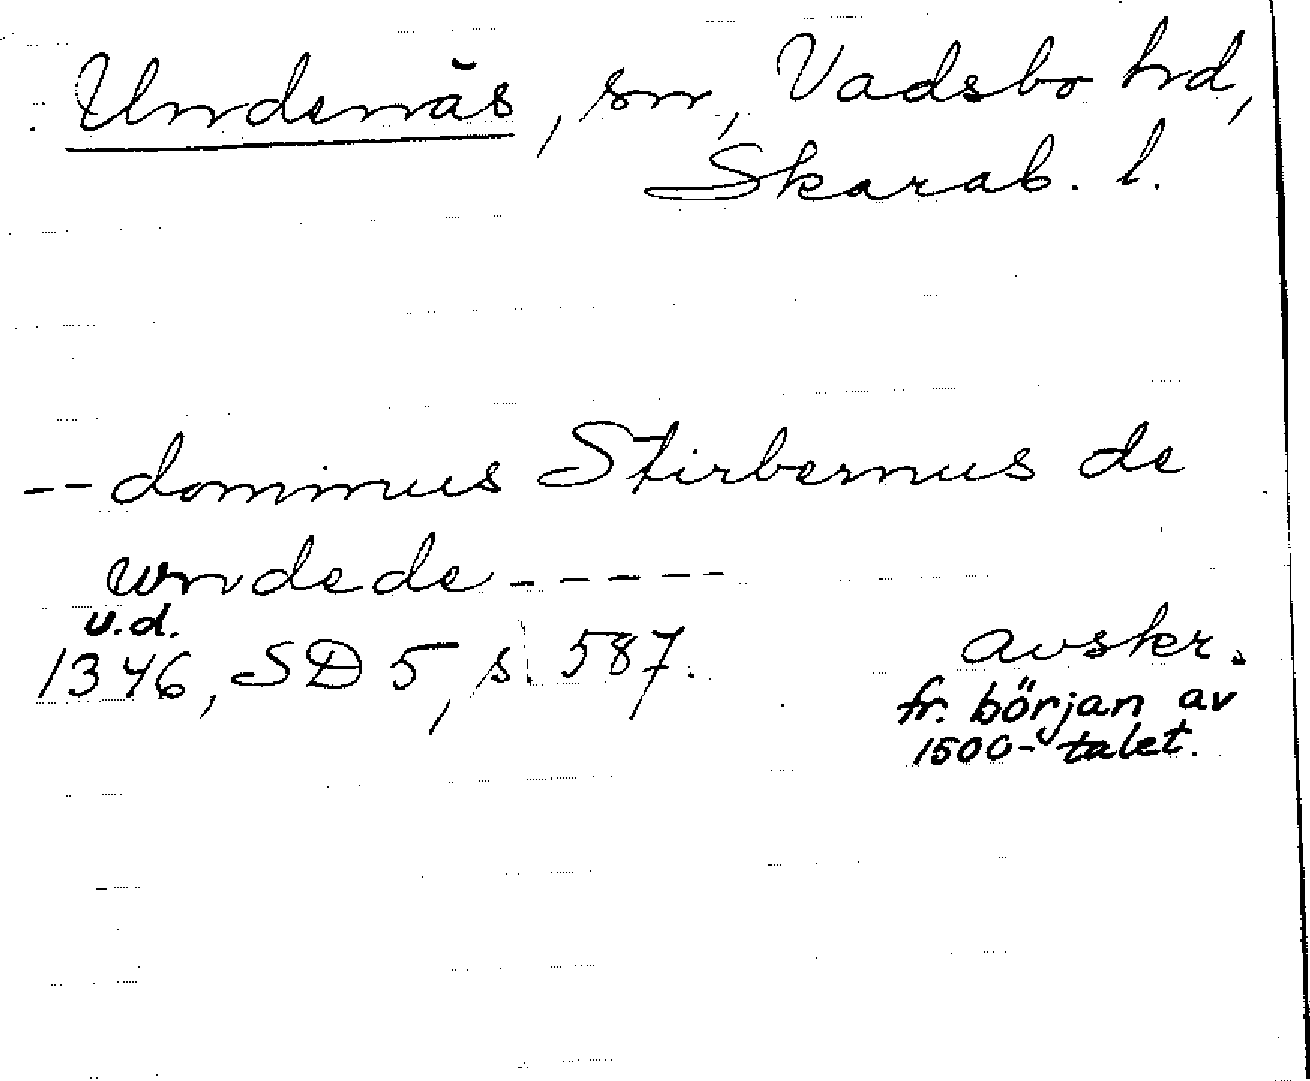 Undenäs, sn, Vadsbo hd,
Skarab. l.
-- dominus Stirbernus de
undede -----
u.d.
1346, SD 5, s 587.
avskr.
fr. början av
1500-talet.